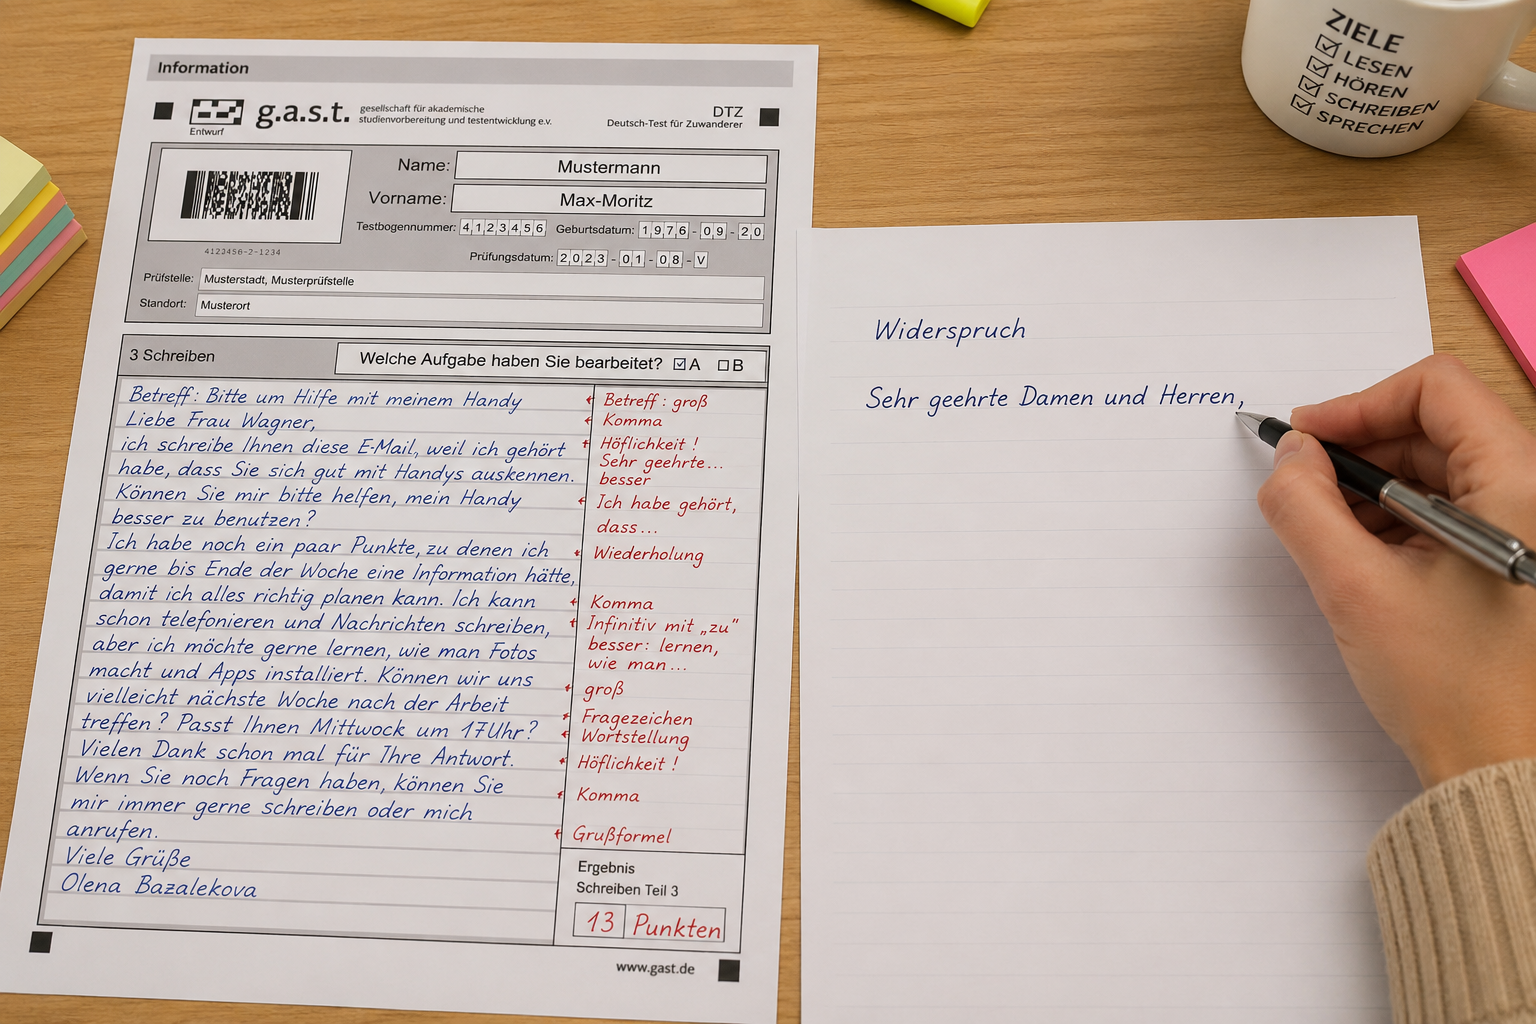 Information
g.a.s.t. gesellschaft für akademische
studienvorbereitung und testentwicklung e.v.
Entwurf
DTZ
Deutsch-Test für Zuwanderer
Name: Mustermann
Vorname: Max-Moritz
Testbogennummer: 4123456 Geburtsdatum: 1976-09-20
4123456-2-1234
Prüfungsdatum: 2023-01-08-V
Prüfstelle: Musterstadt, Musterprüfstelle
Standort: Musterort
3 Schreiben
Welche Aufgabe haben Sie bearbeitet? ☑A ☐B
Betreff: Bitte um Hilfe mit meinem Handy
Liebe Frau Wagner,
ich schreibe Ihnen diese E-Mail, weil ich gehört
habe, dass Sie sich gut mit Handys auskennen.
Können Sie mir bitte helfen, mein Handy
besser zu benutzen?
Ich habe noch ein paar Punkte, zu denen ich
gerne bis Ende der Woche eine Information hätte,
damit ich alles richtig planen kann. Ich kann
schon telefonieren und Nachrichten schreiben,
aber ich möchte gerne lernen, wie man Fotos
macht und Apps installiert. Können wir uns
vielleicht nächste Woche nach der Arbeit
treffen? Passt Ihnen Mittwock um 17Uhr?
Vielen Dank schon mal für Ihre Antwort.
Wenn Sie noch Fragen haben, können Sie
mir immer gerne schreiben oder mich
anrufen.
Viele Grüße
Olena Bazalekova
Betreff: groß
Komma
Höflichkeit!
Sehr geehrte...
besser
Ich habe gehört,
dass...
Wiederholung
Komma
Infinitiv mit „zu"
besser: lernen,
wie man...
groß
Fragezeichen
Wortstellung
Höflichkeit!
Komma
Grußformel
Ergebnis
Schreiben Teil 3
13 Punkten
www.gast.de
Widerspruch
Sehr geehrte Damen und Herren,
ZIELE
☑ LESEN
☑ HÖREN
☑ SCHREIBEN
☑ SPRECHEN